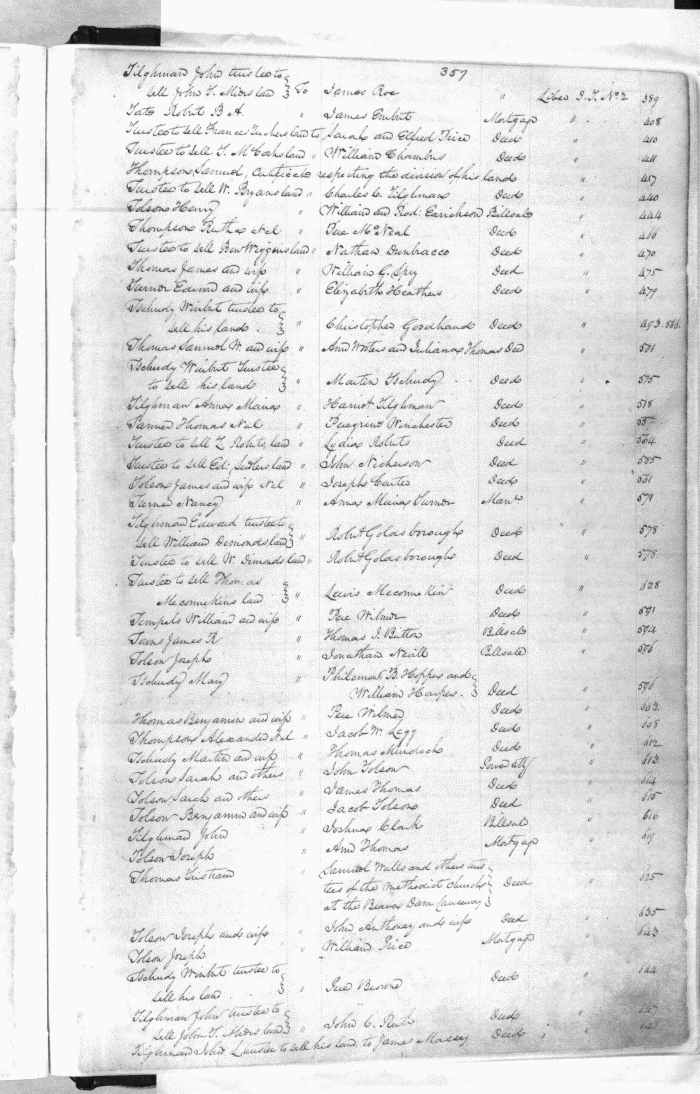 357
Tilghman John trustee to
sell John T. Miers land } To James Roe " Liber J.T. No 2 389
Tate Robert B A. " James Embert Mortgage " 408
Trustee to sell Frances Tuckers land to Sarah and Elfred Price Deed " 410
Trustee to sell T. McCosh land " William Chambers Deed " 411
Thompson Samuel, Certificate respecting the division of his land " 417
Trustee to sell W. Bryans land " Charles C. Tilghman Deed " 440
Tolson Henry " William and Rod: Earickson Billsale " 444
Thompson Ruth et al " Pere McNeal Deed "
Trustee to sell Ben Wiggins land " Nathan Dunbracco Deed " 470
Thomas James and wife " William G. Spry Deed " 475
Turner Edward and wife " Elizabeth Heathers Deed " 479
Tschudy Winbert trustee to
sell his land. } " Christopher Goodhand Deed " 493.
Thomas Samuel W. and wife " Ann Wotters and Juliana Thomas Deed " 501
Tschudy Winbert Trustee
to sell his lands } " Martin Tschudy Deed " 575
Tilghman Anna Maria " Hariot Tilghman Deed " 518
Turner Thomas et al " Peregrine Winchester Deed "
Trustee to sell Z Roberts land " Lydia Roberts Deed " 564
Trustee to sell Ed: land " John Nickerson Deed " 565
Tolson James and wife et al " Joseph Carter Deed " 561
Turner Nancy " Anna Maria Turner Manu 579
Tilghman Edward trustee to
sell William Dimonds land } " Robert Goldsborough Deed " 578
Trustee to sell W. Dimonds land " Robert Goldsborough Deed " 578
Trustee to sell Thomas
Meconnekins land } " Lewis Meconnekin Deed " 628
Temple William and wife " Pere Wilmer Deed " 591
Towns James R " Thomas J. Button Billsale " 594
Tolson Joseph " Jonathan Neall Billsale " 596
Tschudy Mary " Philemon B. Hopper and
William Harper. } Deed " 596
Thomas Benjamin and wife " Pere Wilmer Deed " 603
Thompson Alexander et al " Jacob W. Legg Deed " 608
Tschudy Martin and wife " Thomas Murdoch Deed " 612
Tolson Sarah and others " John Tolson " 613
Tolson Sarah and others " James Thomas Deed " 614
Tolson Benjamin and wife " Jacob Tolson Deed " 615
Tilghman John " Joshua Clark Billsale " 616
Tolson Joseph " Ann Thomas Mortgage " 619
Thomas Tristram " Samuel Walls and others trus
tees of the Methodist Church
at the Beaver Dam Causeway } Deed " 625
Tolson Joseph and wife " John Anthoney and wife Deed " 635
Tolson Joseph " William Price Mortgage " 643
Tschudy Winbert trustee to
sell his land } " Pere Browne Deed " 644
Tilghman John trustee to
sell John T. Miers land } " John C. Ruth Deed "
Tilghman John trustee to sell his land, to James Massey Deed "